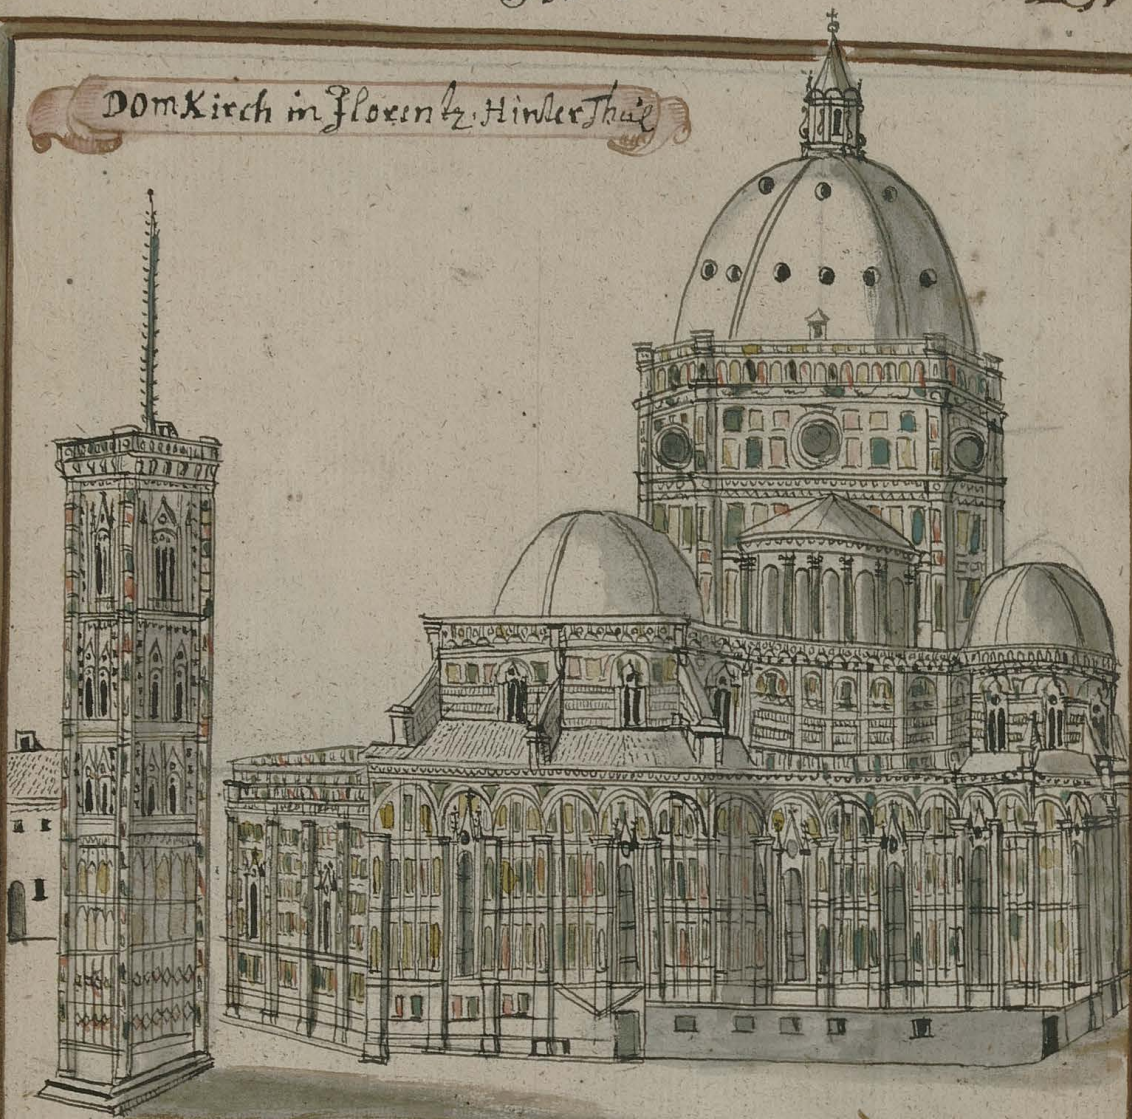 DomKirch in Florentz. Hinter Theil